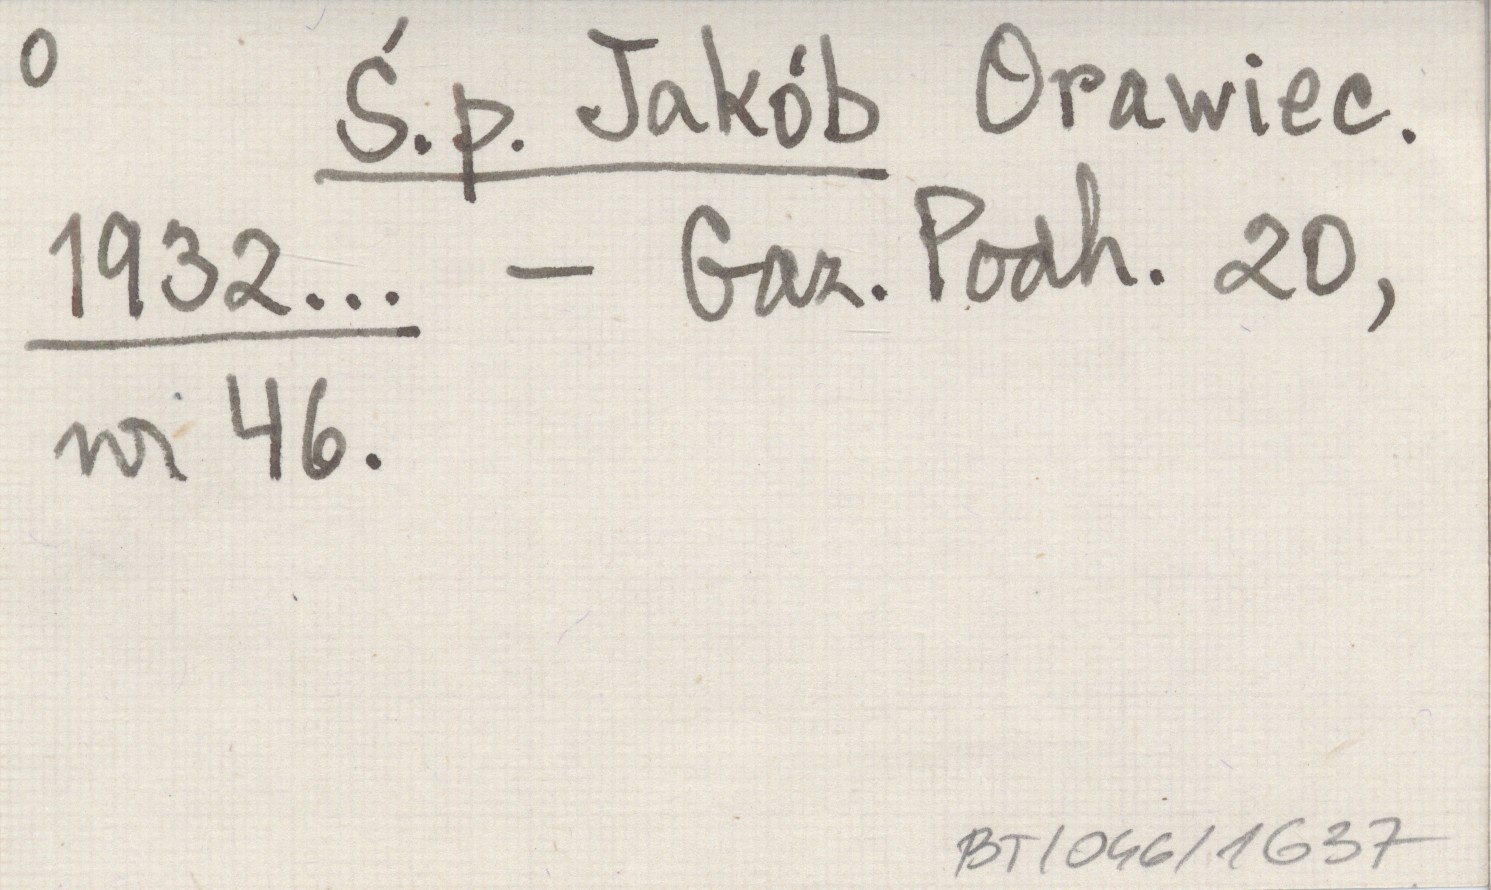 o
Ś.p. Jakób Orawiec.
1932... – Gaz. Podh. 20,
nr 46.
BT/046/1637